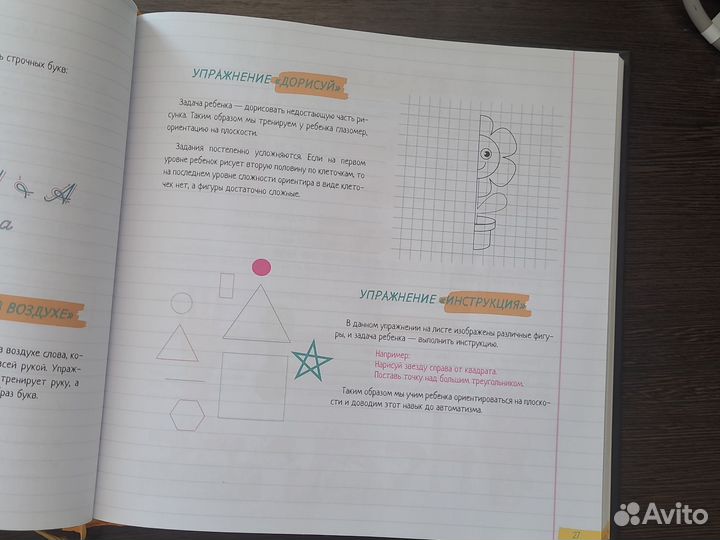 ь строчных букв:
А
а
В ВОЗДУХЕ»
в воздухе слова, ко-
всей рукой. Упраж-
тренирует руку, а
раз букв.
УПРАЖНЕНИЕ «ДОРИСУЙ»
Задача ребенка — дорисовать недостающую часть ри-
сунка. Таким образом мы тренируем у ребенка глазомер,
ориентацию на плоскости.
Задания постепенно усложняются. Если на первом
уровне ребенок рисует вторую половину по клеточкам, то
на последнем уровне сложности ориентира в виде клето-
чек нет, а фигуры достаточно сложные.
УПРАЖНЕНИЕ «ИНСТРУКЦИЯ»
В данном упражнении на листе изображены различные фигу-
ры, и задача ребенка — выполнить инструкцию.
Например:
Нарисуй звезду справа от квадрата.
Поставь точку над большим треугольником.
Таким образом мы учим ребенка ориентироваться на плоско-
сти и доводим этот навык до автоматизма.
27
Avito